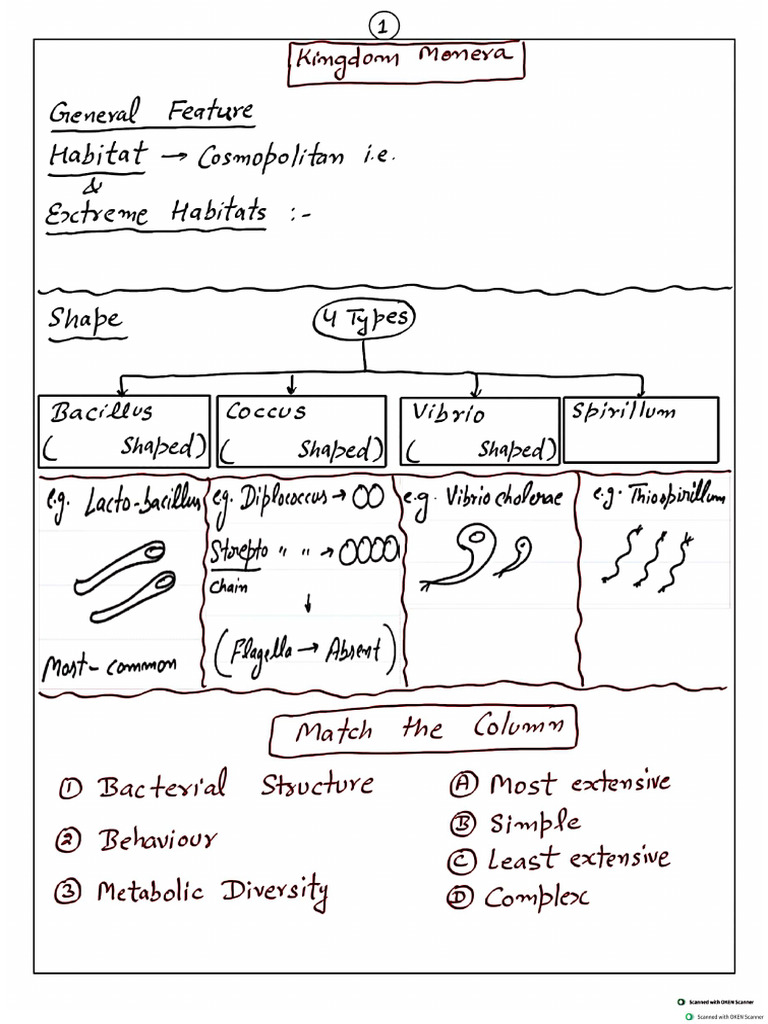 1
Kingdom Monera
General Feature
Habitat → Cosmopolitan i.e.
&
Extreme Habitats :-
Shape
4 Types
Bacillus
( Shaped)
Coccus
( Shaped)
Vibrio
( Shaped)
Spirillum
e.g. Lacto-bacillus
Most-common
eg. Diplococcus →
Strepto " " →
chain
↓
(Flagella → Absent)
e.g. Vibrio cholerae
e.g. Thiospirillum
Match the Column
① Bacterial Structure
② Behaviour
③ Metabolic Diversity
Ⓐ Most extensive
Ⓑ Simple
Ⓒ Least extensive
Ⓓ Complex
Scanned with OKEN Scanner
Scanned with OKEN Scanner